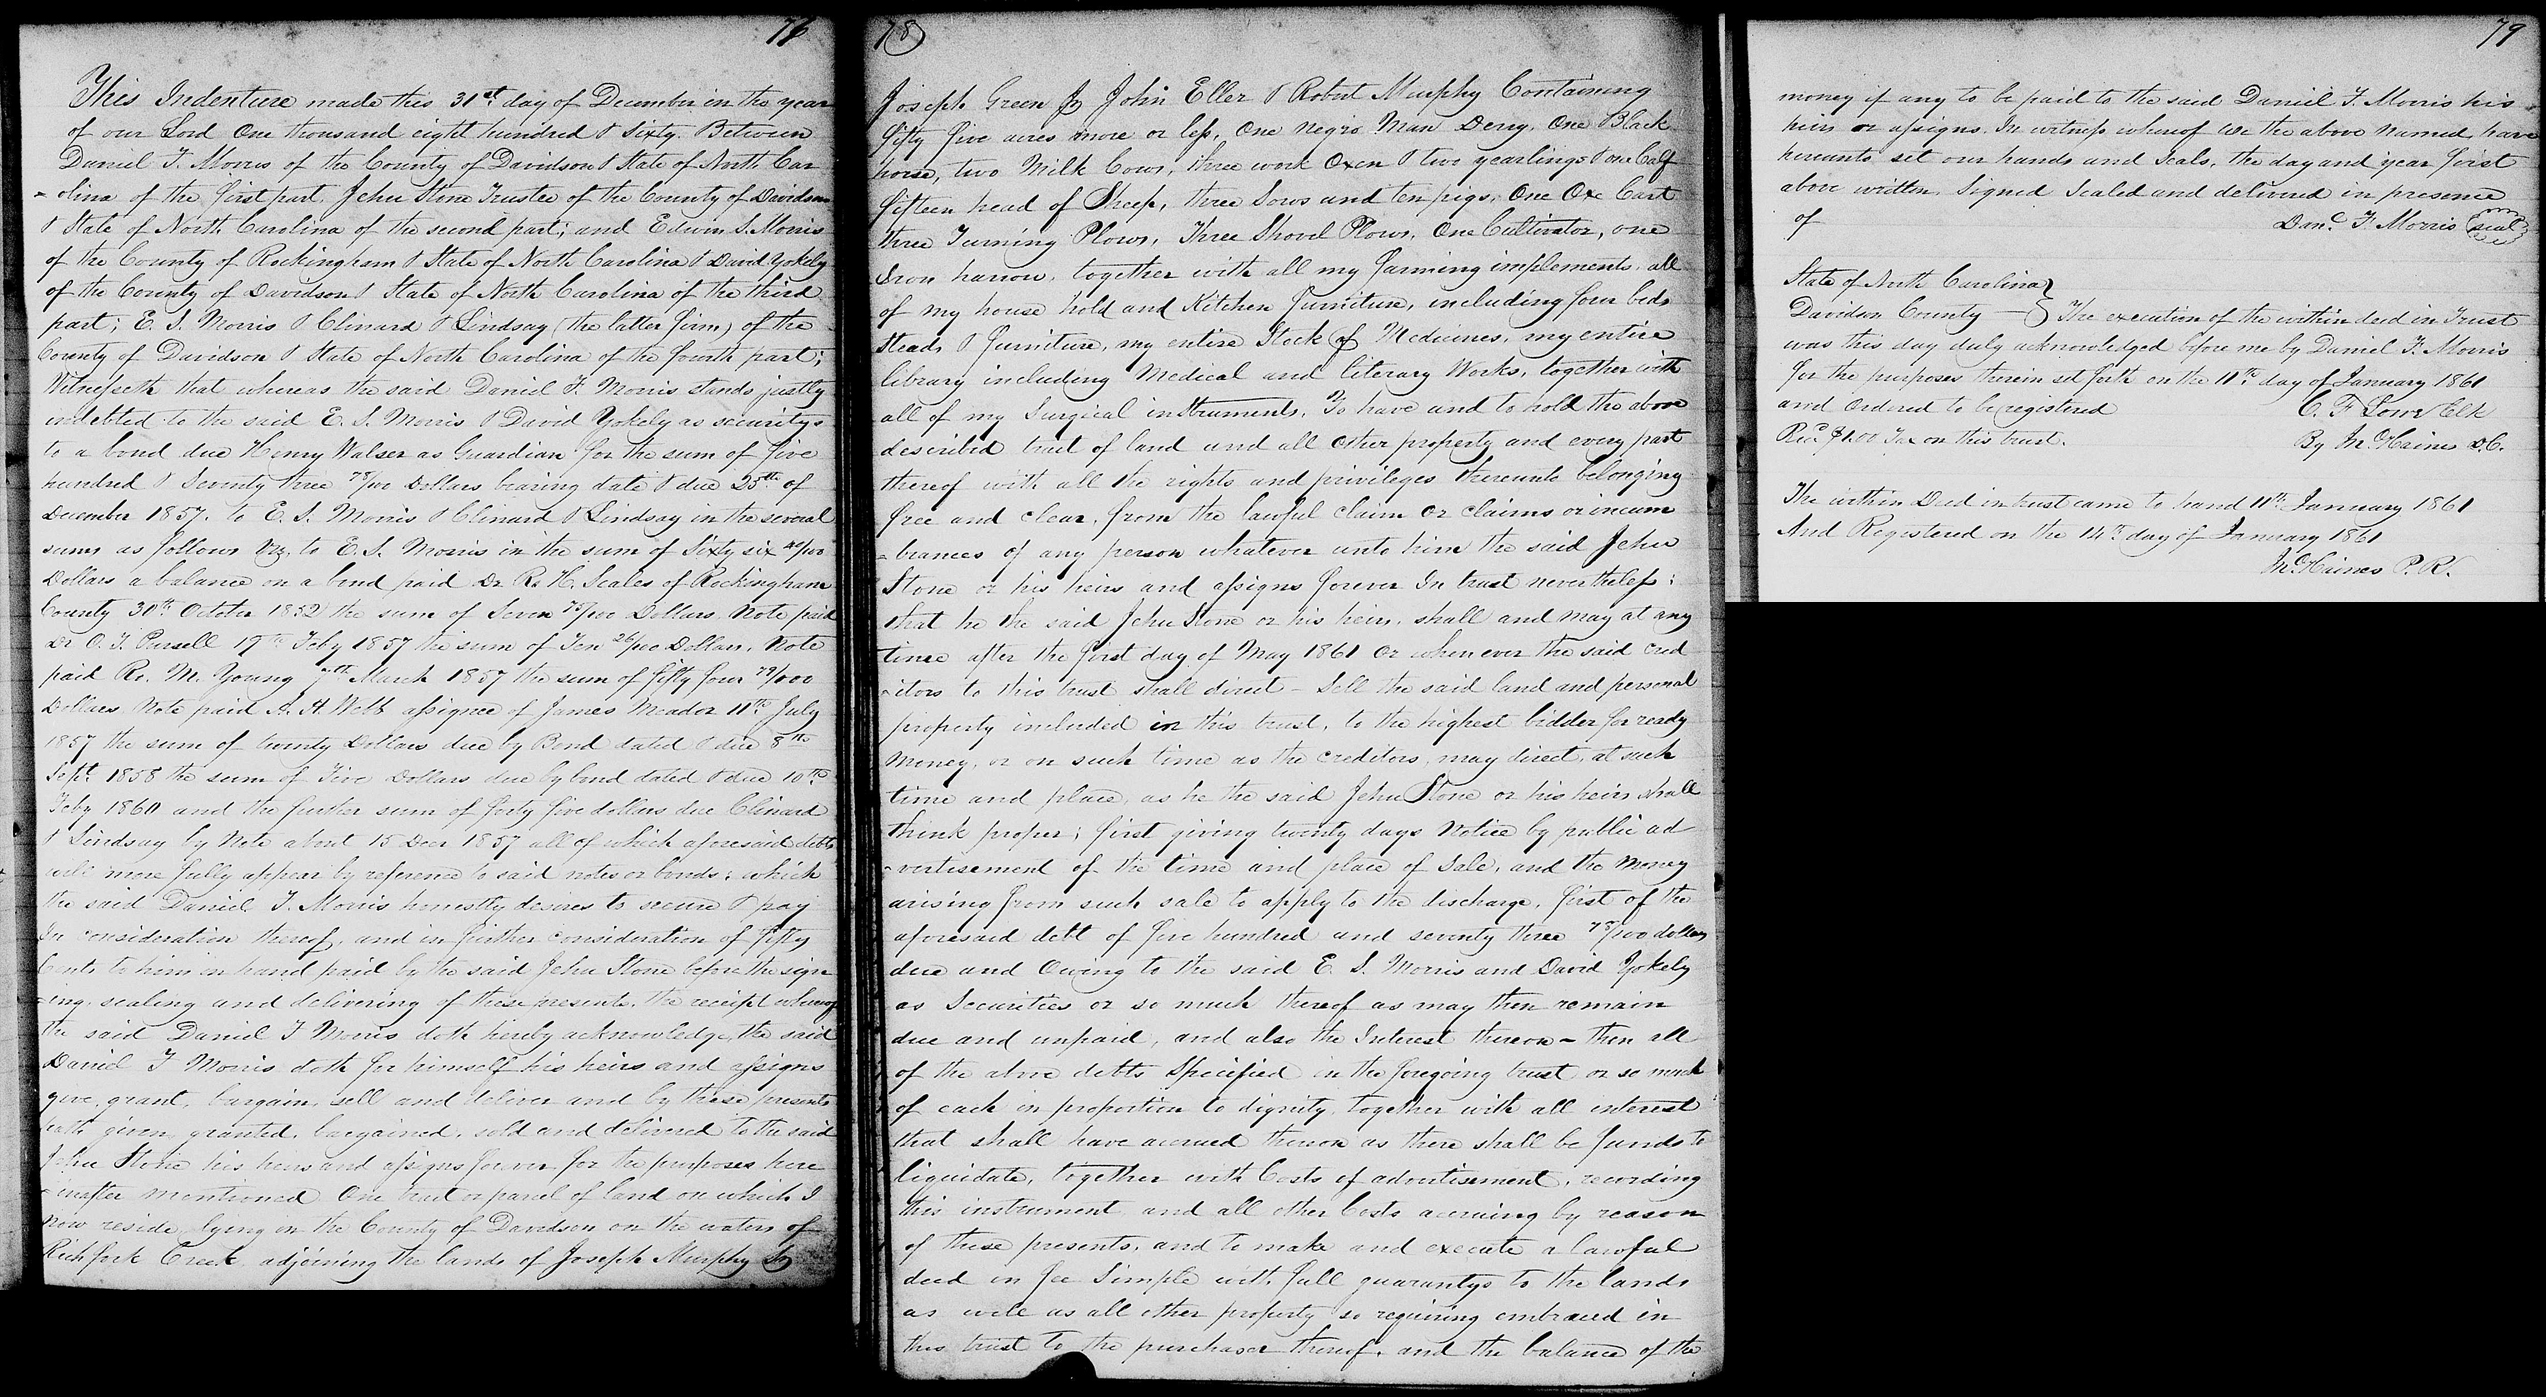 76
This Indenture made this 31st day of December in the year
of our Lord One thousand eight hundred & Sixty. Between
Daniel F. Morris of the County of Davidson & State of North Car
-olina of the first part, Jehu Stone Trustee of the County of Davidson
& State of North Carolina of the second part; and Edwin S. Morris
of the County of Rockingham & State of North Carolina & David Yokely
of the County of Davidson & State of North Carolina of the third
part; E. S. Morris & Clinard & Lindsay (the latter firm) of the
County of Davidson & State of North Carolina of the fourth part;
Witnesseth that whereas the said Daniel F. Morris stands justly
indebted to the said E. S. Morris & David Yokely as securitys
to a bond due Henry Walser as Guardian for the sum of five
hundred & Seventy three 78/100 Dollars bearing date & due 25th of
December 1857. to E. S. Morris & Clinard & Lindsay in the several
sums as follows Viz, to E. S. Morris in the sum of Sixty six /100
Dollars a balance on a bond paid Dr. R. H. Scales of Rockingham
County 30th October 1852 the sum of Seven 75/100 Dollars, Note paid
Dr O. F. Pursell 17th Feby 1857 the sum of Ten 26/100 Dollars, Note
paid R. M. Young 7th March 1857 the sum of fifty four 79/100
Dollars Note paid A. H. Webb assignee of James Meador 11th July
1857 the sum of twenty Dollars due by Bond dated & due 8th
Sept. 1858 the sum of Five Dollars due by bond dated & due 10th
Feby 1860 and the further sum of forty five dollars due Clinard
& Lindsay by Note about 15 Decr 1857 all of which aforesaid debts
will more fully appear by reference to said notes or bonds; which
the said Daniel F. Morris honestly desires to secure & pay
In consideration thereof, and in further consideration of fifty
Cents to him in hand paid by the said Jehu Stone before the sign
-ing, sealing and delivering of these presents, the receipt whereof
the said Daniel F Morris doth hereby acknowledge, the said
Daniel F Morris doth for himself his heirs and assigns
give, grant, bargain, sell and deliver and by these presents
hath given, granted, bargained, sold and delivered to the said
Jehu Stone his heirs and assigns forever for the purposes here
-inafter mentioned One tract or parcel of land on which I
now reside lying in the County of Davidson on the waters of
Rich fork Creek adjoining the lands of Joseph Murphy Sr
78
Joseph Green Jr John Eller & Robert Murphy Containing
fifty five acres more or less, One negro Man Derry, One Black
horse, two Milk Cows, three work Oxen & two yearlings & one Calf
fifteen head of Sheep, three Sows and ten pigs, One Ox Cart
three Turning Plows, Three Shovel Plows, One Cultivator, one
Iron harrow, together with all my farming implements, all
of my house hold and Kitchen furniture, including four beds
steads & furniture, my entire Stock of Medicines, my entire
library including Medical and literary Works, together with
all of my Surgical instruments, To have and to hold the above
described tract of land and all other property and every part
thereof with all the rights and privileges thereunto belonging
free and clear, from the lawful claim or claims or incum
-brances of any person whatever unto him the said Jehu
Stone or his heirs and assigns forever In trust nevertheless;
that he the said Jehu Stone or his heirs, shall and may at any
time after the first day of May 1861 or when ever the said cred
-itors to this trust shall direct - Sell the said land and personal
property included in this trust, to the highest bidder for ready
Money, or on such time as the creditors, may direct, at such
time and place, as he the said Jehu Stone or his heirs shall
think proper; first giving twenty days Notice by public ad
-vertisement of the time and place of Sale, and the Money
arising from such sale to apply to the discharge, first of the
aforesaid debt of five hundred and seventy three 78/100 dollars
due and Owing to the said E. S. Morris and David Yokely
as Securities or so much thereof as may then remain
due and unpaid, and also the Interest thereon - then all
of the above debts Specified in the foregoing trust or so much
of each in proportion to dignity, together with all interest
that shall have accrued thereon as there shall be funds to
liquidate, together with Costs of advertisement, recording
this instrument and all other Costs accruing by reason
of these presents, and to make and execute a lawful
deed in fee Simple with full guarantys to the lands
as well as all other property so requiring embraced in
this trust to the purchaser thereof, and the balance of the
79
money if any to be paid to the said Daniel F. Morris his
heirs or assigns. In witness whereof we the above named have
hereunto set our hands and Seals, the day and year first
above written. Signed Sealed and delivered in presence
of Danl F. Morris seal
State of North Carolina }
Davidson County — } The execution of the within deed in Trust
was this day duly acknowledged before me by Daniel F. Morris
for the purposes therein set forth on the 11th day of January 1861
and Ordered to be registered C. F Lowe Clk
Recd $1.00 Tax on this trust. By M. Haines D.C.
The within Deed in trust came to hand 11th January 1861
And Registered on the 14th day of January 1861
M. Haines P.R.